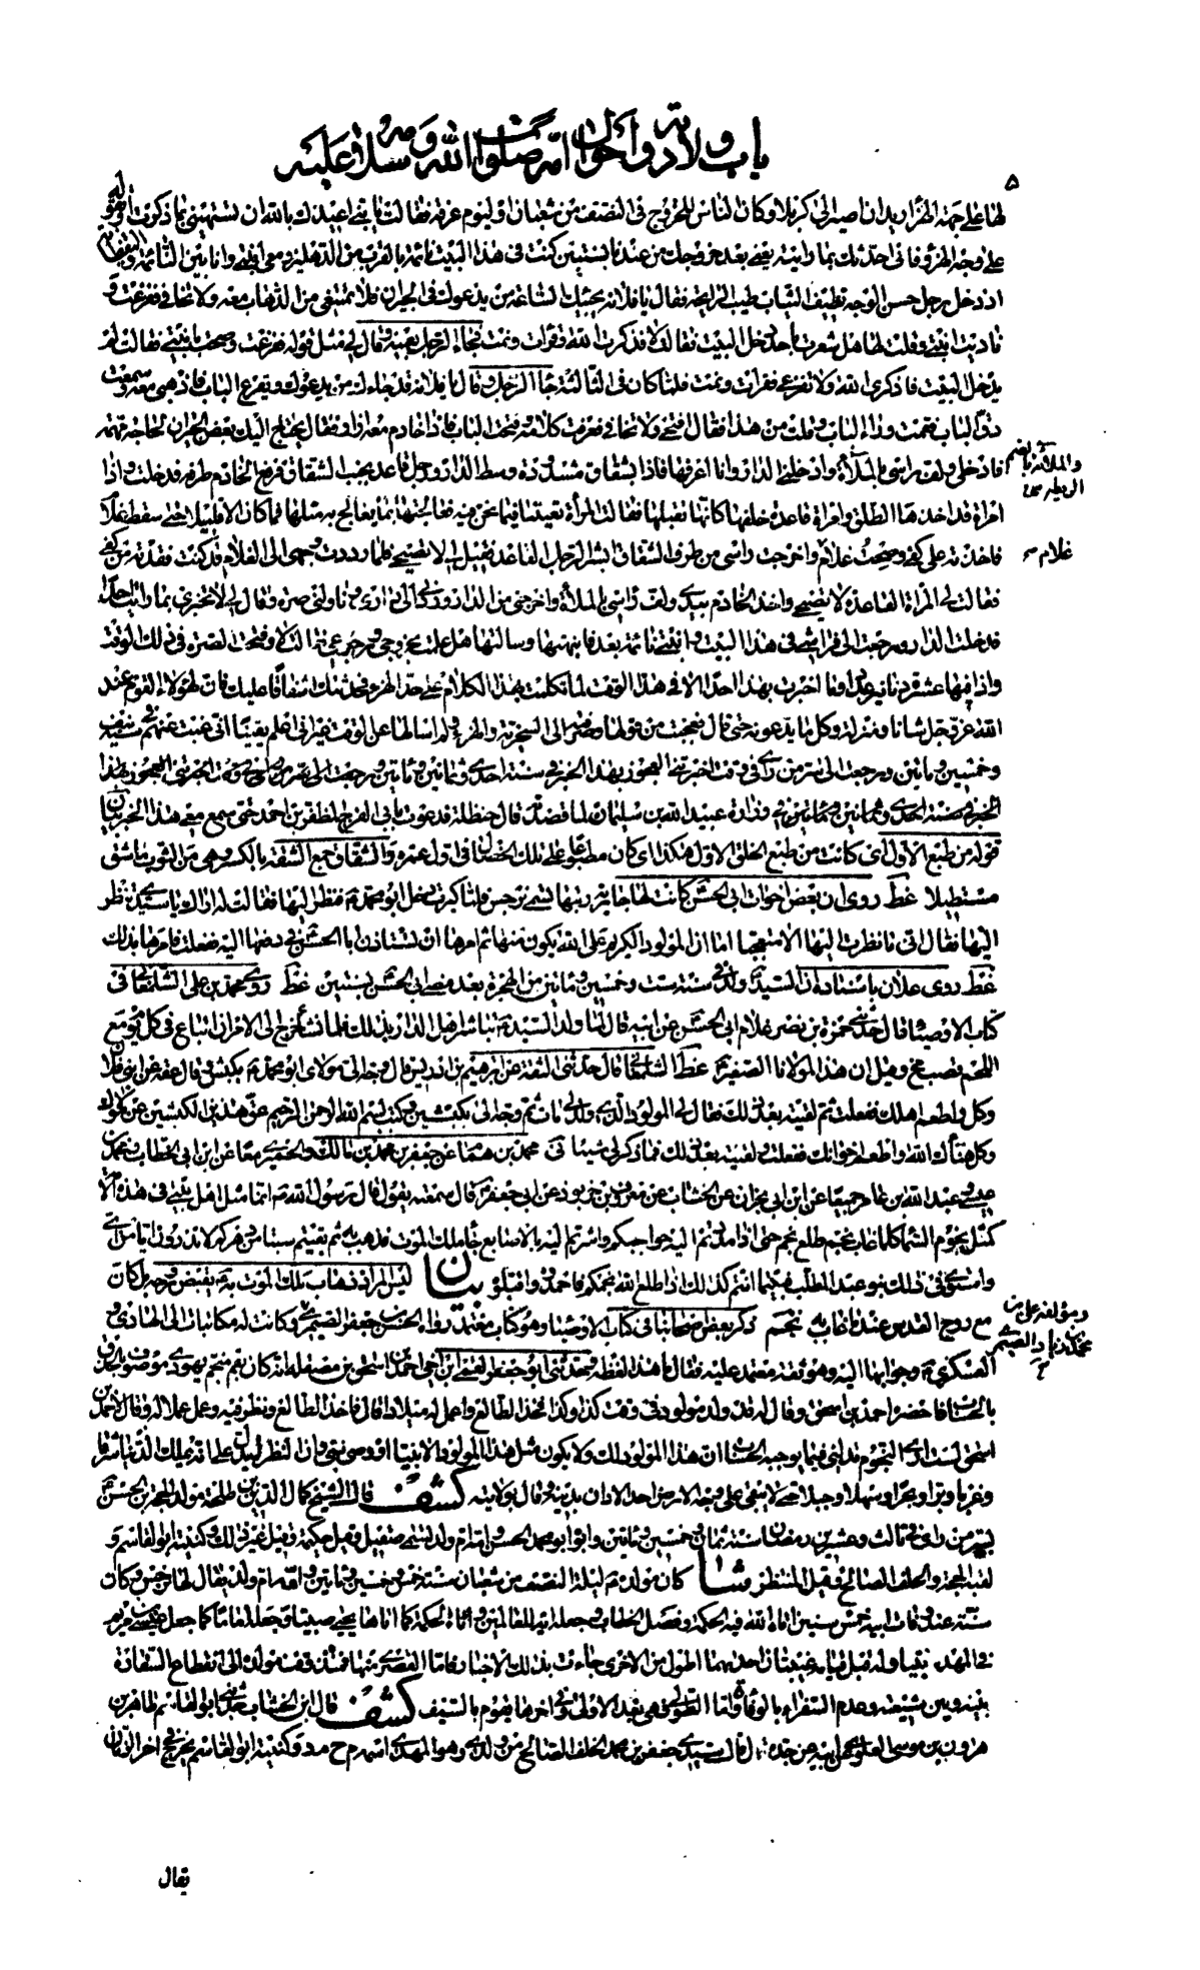 باب ولادته واحوال امه صلوات الله وسلامه عليه
۵
لها على جهة الهزء اريد ان اصير الى كربلا وكان الناس للخروج فى النصف من شعبان او ليوم عرفة فقالت يا بنى اعيذك بالله ان تستهينى بما ذكرت
على وجه الهزؤ فانى احدثك بما رايته يعنى بعد خروجك من عندنا بسنتين كنت فى هذا البيت نائمة بالقرب من الدهليز ومعى ابنتى وانا بين النائمة واليقظانة
اذ دخل رجل حسن الوجه نظيف الثياب طيب الرائحة فقال يا فلانة يجيئك الساعة من يدعوك فى الجيران فلا تمتنعى من الذهاب معه ولا تخافى ففزعت و
ناديت ابنتى وقلت لها هل شعرت باحد دخل البيت فقالت لا فذكرت الله وقرات ونمت فجاء الرجل بعينه وقال لى مثل قوله ففزعت وصحت بابنتى فقالت لم
يدخل البيت فاذكرى الله ولا تفزعى فقرات ونمت فلما كان فى الثالثة جاء الرجل وقال يا فلانة قد جاءك من يدعوك ويقرع الباب فاذهبى معه وسمعت
دق الباب فقمت وراء الباب وقلت من هذا فقال افتحى ولا تخافى فعرفت كلامه وفتحت الباب فاذا خادم معه ازار فقال يحتاج اليك بعض الجيران لحاجة مهمة
فادخلى ولف راسى بالملاءة وادخلنى الدار وانا اعرفها فاذا بشقاق مشدودة وسط الدار ورجل قاعد بجنب الشقاق فرفع الخادم طرفه فدخلت واذا
امراة قد اخذها الطلق وامراة قاعدة خلفها كانها تقبلها فقالت المرأة تعيننا فيما نحن فيه فعالجتها بما يعالج به مثلها فما كان الا قليلا حتى سقط غلام
فاخذته على كفى وصحت غلام غلام واخرجت راسى من طرف الشقاق ابشر الرجل القاعد فقيل لى لا تصيحى فلما رددت وجهى الى الغلام قد كنت فقدته من كفى
فقالت لى المراة القاعدة لا تصيحى واخذ الخادم بيدى ولف راسى بالملاءة واخرجنى من الدار وردنى الى دارى وناولنى صرة وقال لى لا تخبرى بما رايت احدا
فدخلت الدار ورجعت الى فراشى فى هذا البيت وابنتى نائمة بعد فانبهتها وسالتها هل علمت بخروجى ورجوعى فقالت لا وفتحت الصرة فى ذلك الوقت
واذا فيها عشرة دنانير عددا وما اخبرت بهذا احدا الا فى هذا الوقت لما تكلمت بهذا الكلام على حد الهزء فحدثتك اشفاقا عليك فان لهؤلاء القوم عند
الله عز وجل شانا ومنزلة وكل ما يدعونه حق قال فعجبت من قولها وصرفته الى السخرية والهزء ولم اسالها عن الوقت غير انى اعلم يقينا انى غبت عنهم سنة نيف
وخمسين ومائتين ورجعت الى سر من راى فى وقت اخبرتنى العجوز بهذا الخبر فى سنة احدى وثمانين ومائتين
الخبر فى وزارة عبيد الله بن سليمان لما قصدته قال حنظلة فدعوت بابى الفرج المظفر بن احمد حتى سمع معى هذا الخبر بيان
قوله من طبع الاول اى كانت من طبع الخلق الاول هكذا اى كان مطبوعا على تلك الخصال فى اول عمره والشقاق جمع الشقة بالكسر وهى من الثوب ما شق
مستطيلا غط روى ان بعض اخوات ابى الحسن كانت لها جارية ربتها تسمى نرجس فلما كبرت دخل ابو محمد فنظر اليها فقالت له اراك يا سيدى تنظر
اليها فقال انى ما نظرت اليها الا متعجبا اما ان المولود الكريم على الله يكون منها ثم امرها ان تستاذن ابا الحسن فى دفعها اليه ففعلت فامرها بذلك
غط روى علان باسناده ان السيد ولد فى سنة ست وخمسين ومائتين من الهجرة بعد مضى ابى الحسن بسنتين غط روى محمد بن على الشلمغانى فى
كتاب الاوصياء قال حدثنى حمزة بن نصر غلام ابى الحسن عن ابيه قال لما ولد السيد تباشر اهل الدار بذلك فلما نشأ خرج الى الامر ان ابتاع فى كل يوم مع
اللحم قصب مخ وقيل ان هذا لمولانا الصغير غط الشلمغانى قال حدثنى الثقة عن ابرهيم بن ادريس قال وجه الى مولاى ابو محمد بكبش وقال عقه عن ابنى فلان
وكل واطعم اهلك ففعلت ثم لقيته بعد ذلك فقال لى المولود الذى ولد لى مات ثم وجه الى بكبشين وكتب بسم الله الرحمن الرحيم عق هذين الكبشين عن مولاك
وكل هناك الله واطعم اخوانك ففعلت ولقيته بعد ذلك فما ذكر لى شيئا نى محمد بن همام عن جعفر بن محمد بن مالك والحميرى معا عن ابن ابى الخطاب ومحمد بن
عيسى وعبد الله بن عامر جميعا عن ابن ابى نجران عن الخشاب عن معروف بن خربوذ عن ابى جعفر قال سمعته يقول قال رسول الله انما مثل اهل بيتى فى هذه الامة
كمثل نجوم السماء كلما غاب نجم طلع نجم حتى اذا مددتم اليه حواجبكم واشرتم اليه بالاصابع جاء ملك الموت فذهب به ثم بقيتم سبتا من دهركم لا تدرون ايا من اى
واستوى فى ذلك بنو عبد المطلب فبينما انتم كذلك اذ اطلع الله نجمكم فاحمدوه واقبلوه بيان ليس المراد ذهاب ملك الموت به بقبض روحه بل كان
مع روح القدس عند ما غاب به نجم ذكر بعض اصحابنا فى كتاب الاوصياء وهو كتاب معتمد رواه الحسن بن جعفر الصيمرى وكانت له مكاتبات الى الهادى و
العسكرى وجوابها اليه وهو ثقة معتمد عليه فقال ما هذا لفظه وحدثنى ابو جعفر القمى ابن اخى احمد بن اسحق بن مصقلة انه كان بقم منجم يهودى موصوف بالحذق
بالحساب فاحضره احمد بن اسحق وقال له قد ولد مولود فى وقت كذا وكذا فخذ الطالع واعمل له ميلادا قال فاخذ الطالع ونظر فيه وعمل عملا له وقال لاحمد بن
اسحق لست ارى النجوم تدلنى فيما يوجبه الحساب ان هذا المولود لك ولا يكون مثل هذا المولود الا نبيا او وصى نبى وان النظر ليدل على انه يملك الدنيا شرقا
وغربا وبرا وبحرا وسهلا وجبلا حتى لا يبقى على وجه الارض احد الا دان بدينه وقال بولايته كشف قال الشيخ كمال الدين بن طلحة مولد الحجة بن الحسن
بسر من راى فى ثالث وعشرين رمضان سنة ثمان وخمسين ومائتين وابوه ابو محمد الحسن وامه ام ولد تسمى صقيل وقيل حكيمة وقيل غير ذلك وكنيته ابو القاسم و
لقبه الحجة والخلف الصالح وقيل المنتظر شا كان مولده ليلة النصف من شعبان سنة خمس وخمسين ومائتين وامه ام ولد يقال لها نرجس وكان
سنه عند وفات ابيه خمس سنين اتاه الله فيه الحكمة وفصل الخطاب وجعله اية للعالمين واتاه الحكمة كما اتاها يحيى صبيا وجعله اماما كما جعل عيسى بن مريم
فى المهد نبيا وله قبل قيامه غيبتان احديهما اطول من الاخرى جاءت بذلك الاخبار فاما القصرى منها فمنذ وقت مولده الى انقطاع السفارة
بينه وبين شيعته وعدم السفراء بالوفاة واما الطولى فهى بعد الاولى وفى اخرها يقوم بالسيف كشف قال ابن الخشاب حدثنى ابو القاسم طاهر بن
هرون بن موسى العلوى عن ابيه عن جده قال قال سيدى جعفر بن محمد الخلف الصالح من ولدى وهو المهدى اسمه م ح م د وكنيته ابو القاسم يخرج فى اخر الزمان
والملائة بالضم
الريطة
غلام
ومؤلفه على بن
محمد بن زياد الصيمرى
يقال